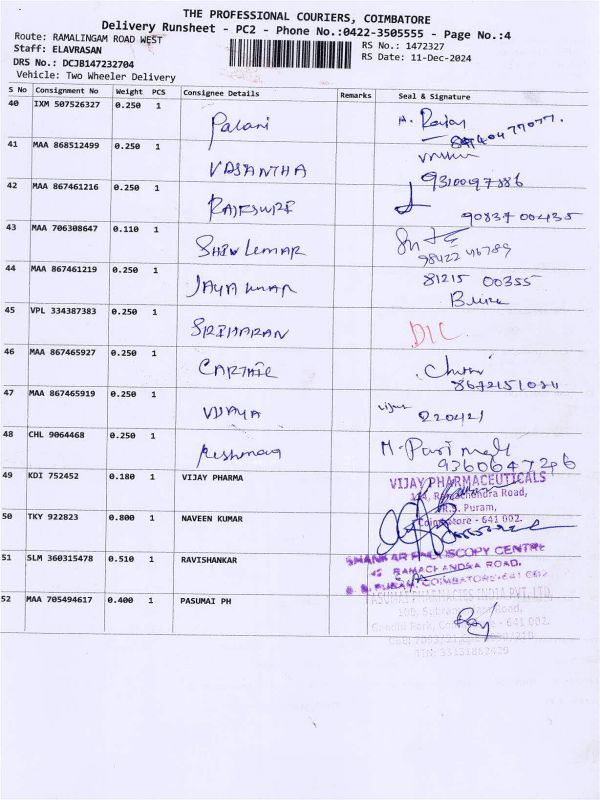 THE PROFESSIONAL COURIERS, COIMBATORE
Delivery Runsheet - PC2 - Phone No.:0422-3505555 - Page No.:4
Route: RAMALINGAM ROAD WEST
RS No.: 1472327
Staff: ELAVRASAN
RS Date: 11-Dec-2024
DRS No.: DCJB147232704
Vehicle: Two Wheeler Delivery
S No Consignment No Weight PCS Consignee Details Remarks Seal & Signature
40 IXM 507526327 0.250 1 Palani
41 MAA 868512499 0.250 1 VASANTHA
42 MAA 867461216 0.250 1 RAJESWRI
90837 00435
43 MAA 706308647 0.110 1
98422 46789
44 MAA 867461219 0.250 1 JAYA KUMAR 81215 00355
45 VPL 334387383 0.250 1 SRIHARAN
46 MAA 867465927 0.250 1 CARTHIC
47 MAA 867465919 0.250 1 VIJAYA 220421
48 CHL 9064468 0.250 1
9360647296
49 KDI 752452 0.180 1 VIJAY PHARMA VIJAY PHARMACEUTICALS
Road,
R.S. Puram,
Coimbatore - 641 002.
50 TKY 922823 0.800 1 NAVEEN KUMAR
51 SLM 360315478 0.510 1 RAVISHANKAR
RAMACHANDRA ROAD,
52 MAA 705494617 0.400 1 PASUMAI PH